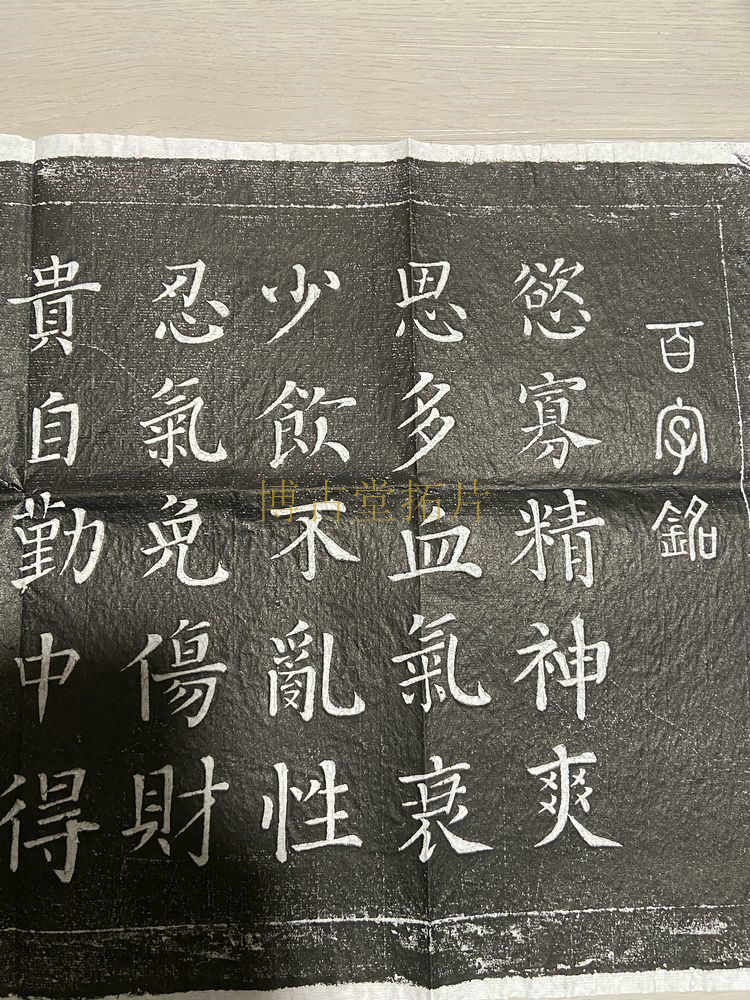 百字銘
慾寡精神爽
思多血氣衰
少飲不亂性
忍氣免傷財
貴自勤中得
博古堂拓片